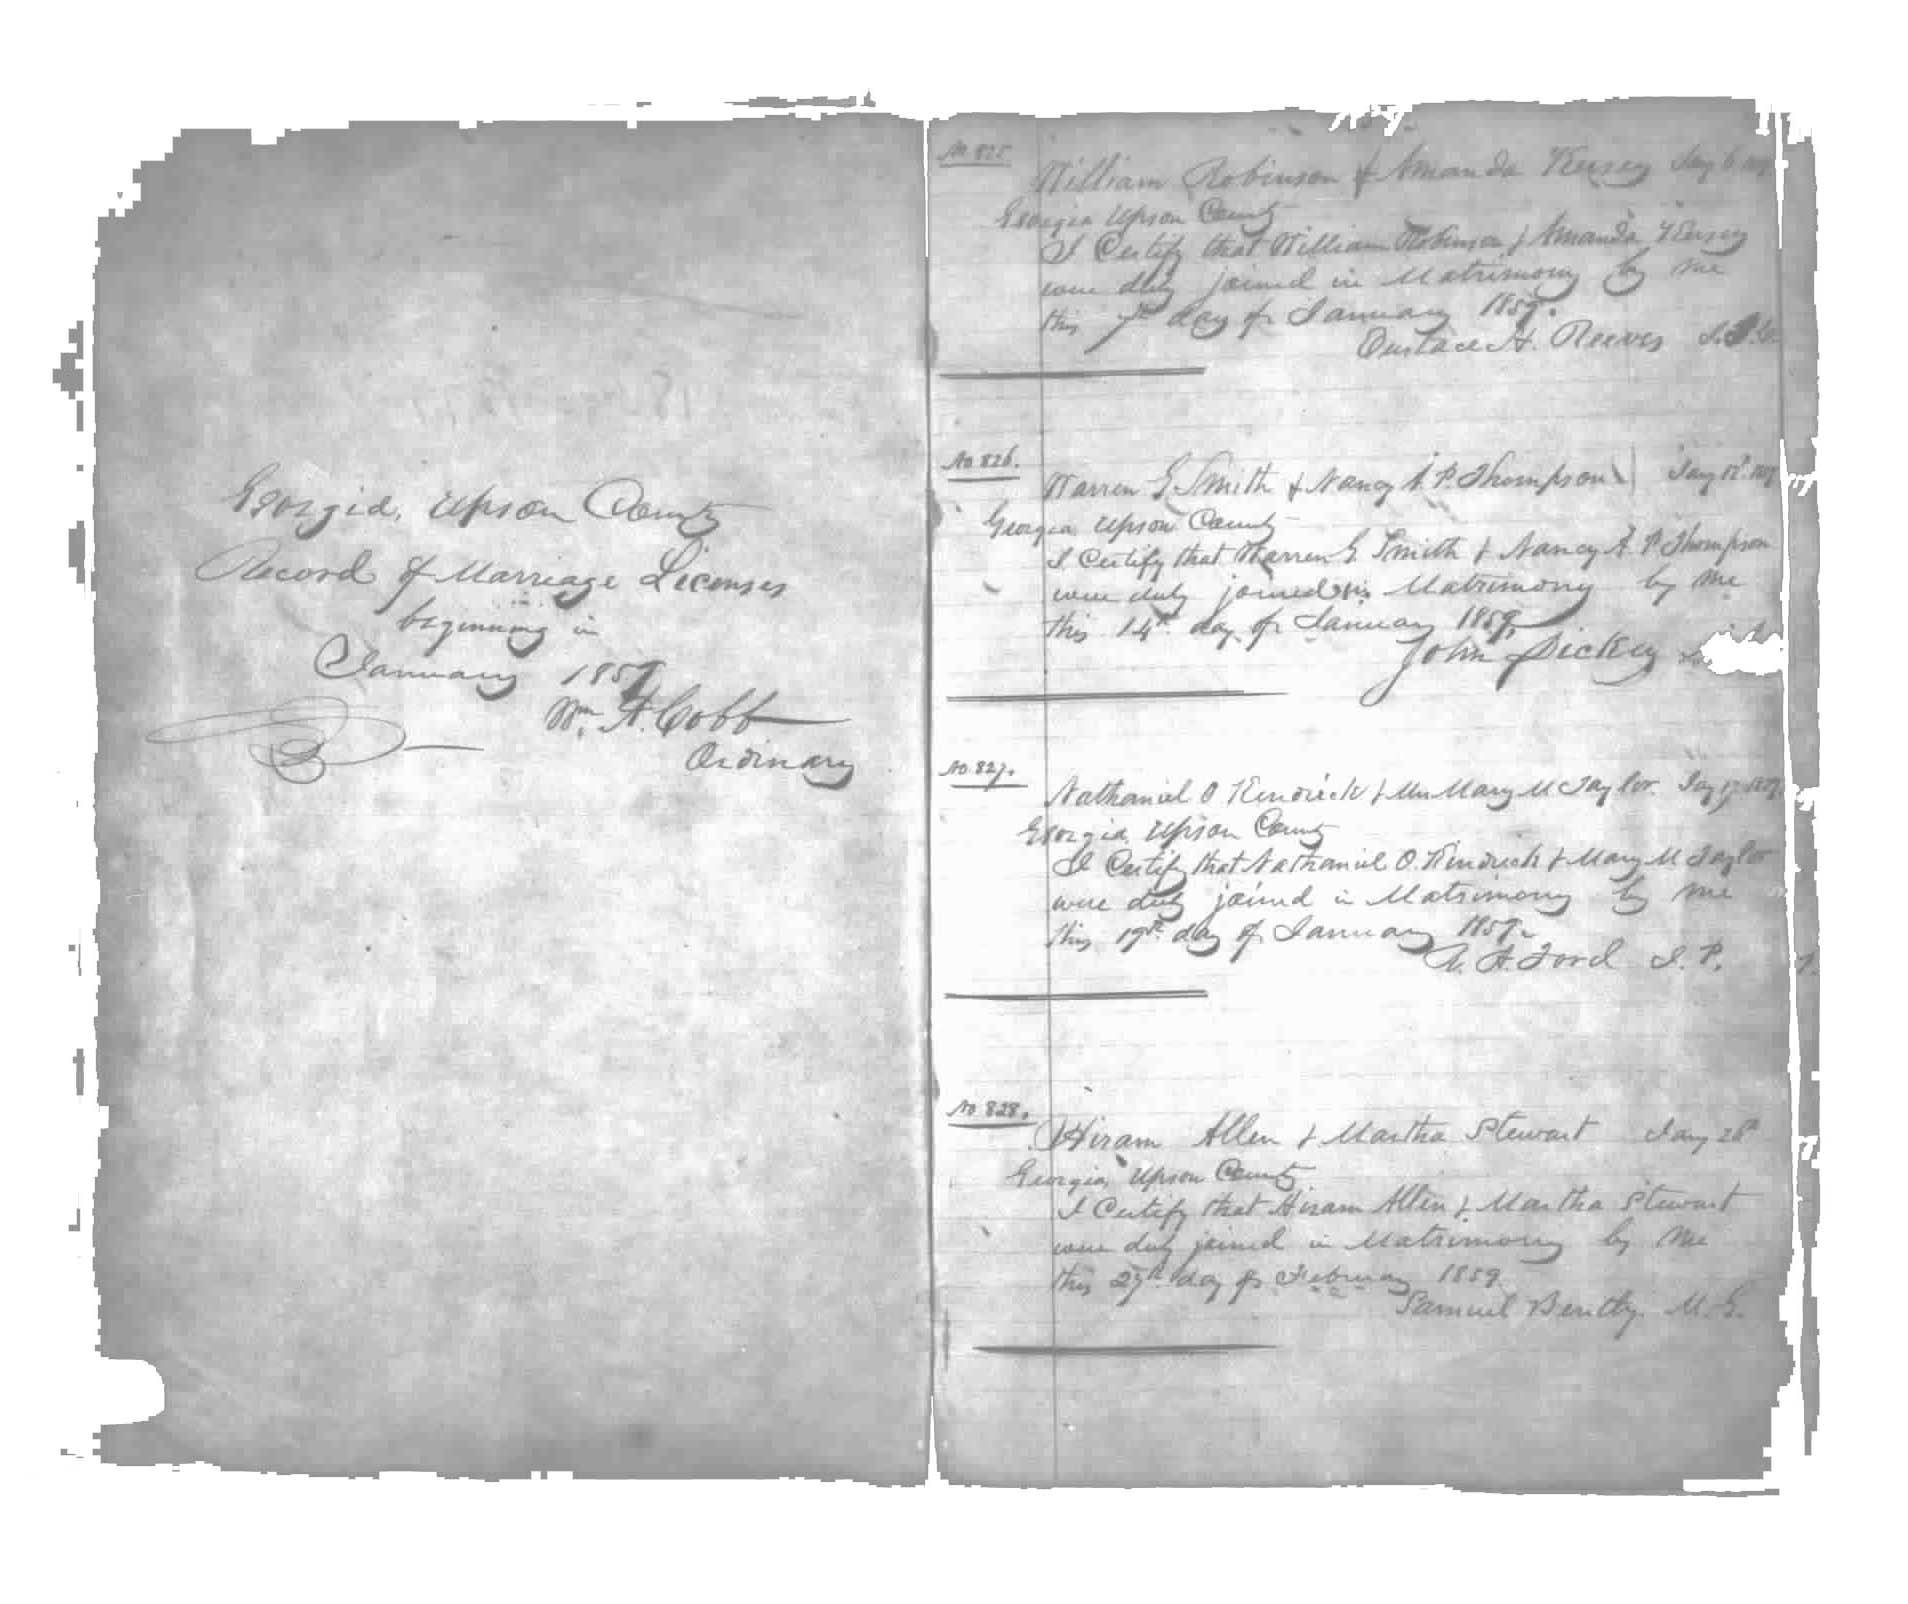 Georgia, Upson County
Record of Marriage Licenses
beginning in
January 1859
Wm. A. Cobb
Ordinary
No. 825.
William Robinson & Amanda Kersey Jany 6
Georgia Upson County
I Certify that William Robinson & Amanda Kersey
were duly joined in Matrimony by me
this 7th day of January 1859.
Eustace H. Reeves
No 826.
Warren G Smith & Nancy A. P. Thompson Jany 12th
Georgia Upson County
I Certify that Warren G Smith & Nancy A. P. Thompson
were duly joined in Matrimony by me
this 14th day of January 1859,
John Dickey
No. 827.
Nathaniel O Kendrick & Mary M Taylor. Jany 17
Georgia Upson County
I Certify that Nathaniel O. Kendrick & Mary M. Taylor
were duly joined in Matrimony by me
this 19th day of January 1859.
A. H. Ford J. P.
No 828.
Hiram Allen & Martha Stewart Jany 28th
Georgia, Upson County
I Certify that Hiram Allen & Martha Stewart
were duly joined in Matrimony by me
this 27th day of February 1859
Samuel Bently M. G.